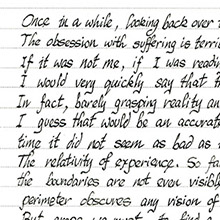 Once in a while, looking back over
The obsession with suffering is terri
If it was not me, if I was readin
I would very quickly say that
In fact, barely grasping reality an
I guess that would be an accurat
time it did not seem as bad as
The relativity of experience. So fa
the boundaries are not even visible
perimeter obscures any vision of